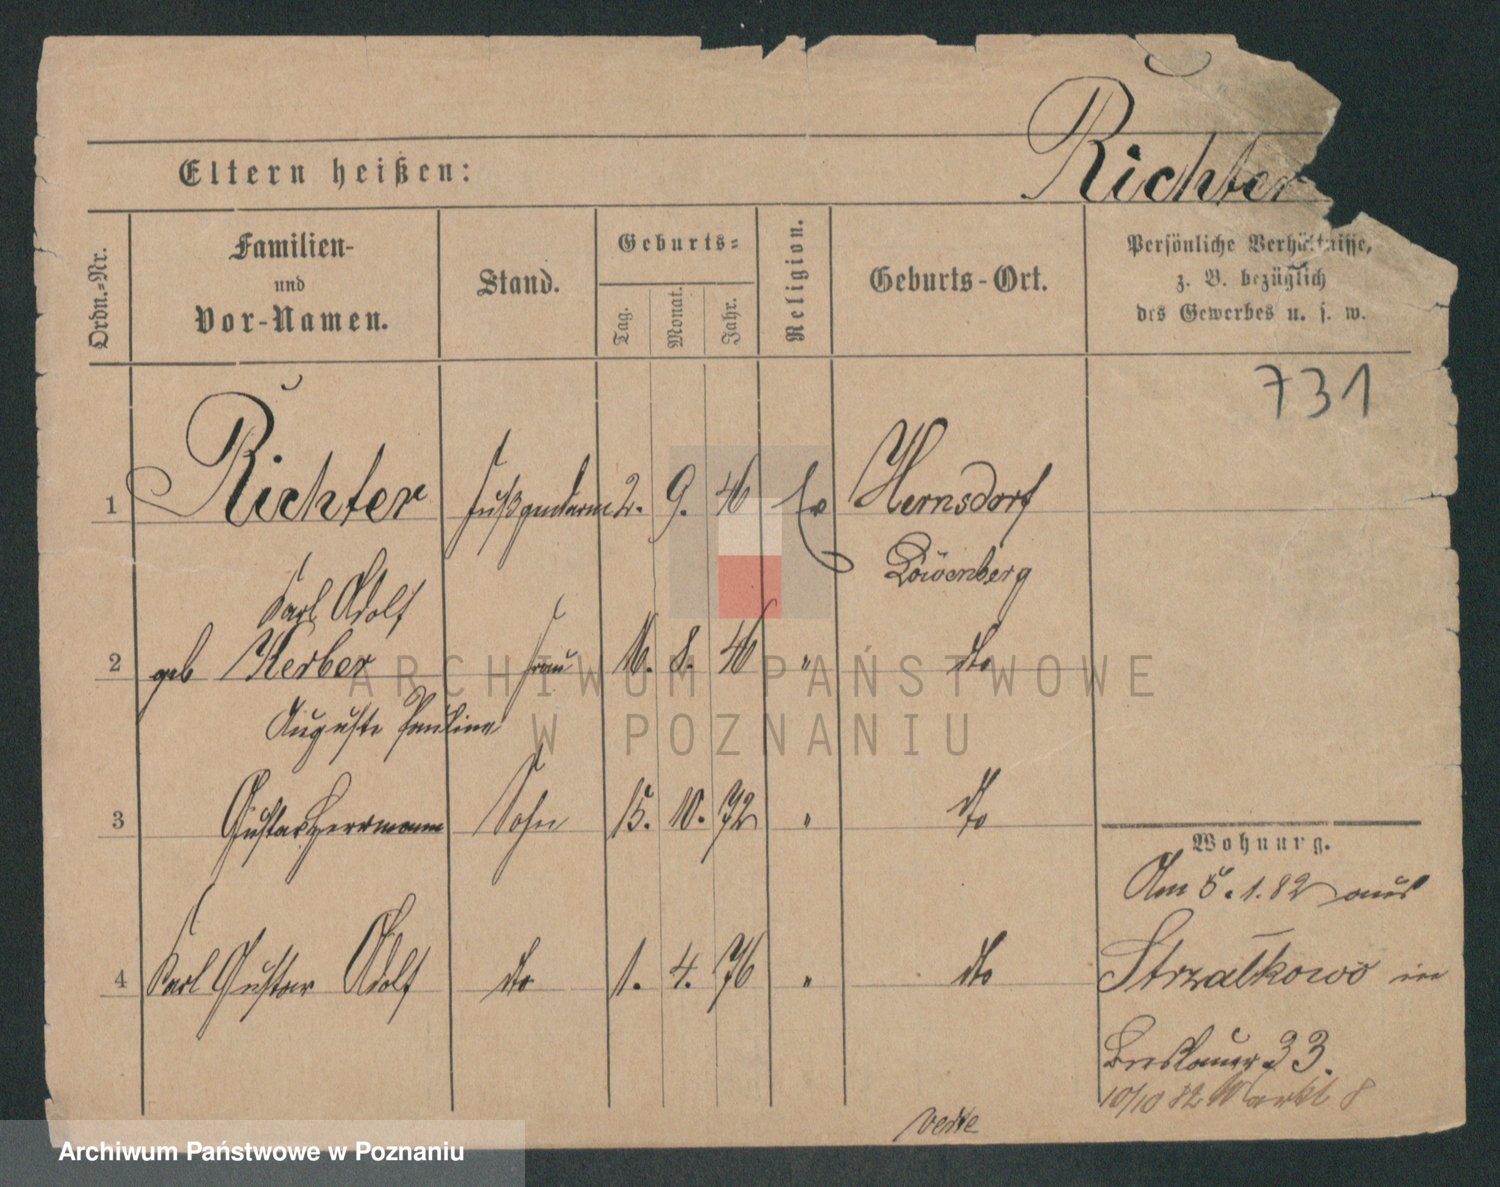 Richter
Eltern heißen:
Ordn.-Nr.
Familien-
und
Vor-Namen.
Stand.
Geburts-
Tag.
Monat.
Jahr.
Religion.
Geburts-Ort.
Persönliche Verhältnisse,
z. B. bezüglich
des Gewerbes u. s. w.
731
1 Richter Fußgendarm 2. 9. 46 Ev Hernsdorf
Karl Adolf Löwenberg
2 geb Herber Frau 16. 8. 46 " dto
Auguste Pauline
3 Gustav Herrmann Sohn 15. 10. 72 " dto
4 Karl Gustav Adolf dto 1. 4. 76 " dto
Wohnung.
Am 5.1.82 aus
Strzalkowo in
Breslauer 33.
10/10 82 Markt 8
verte
ARCHIWUM PAŃSTWOWE
W POZNANIU
Archiwum Państwowe w Poznaniu